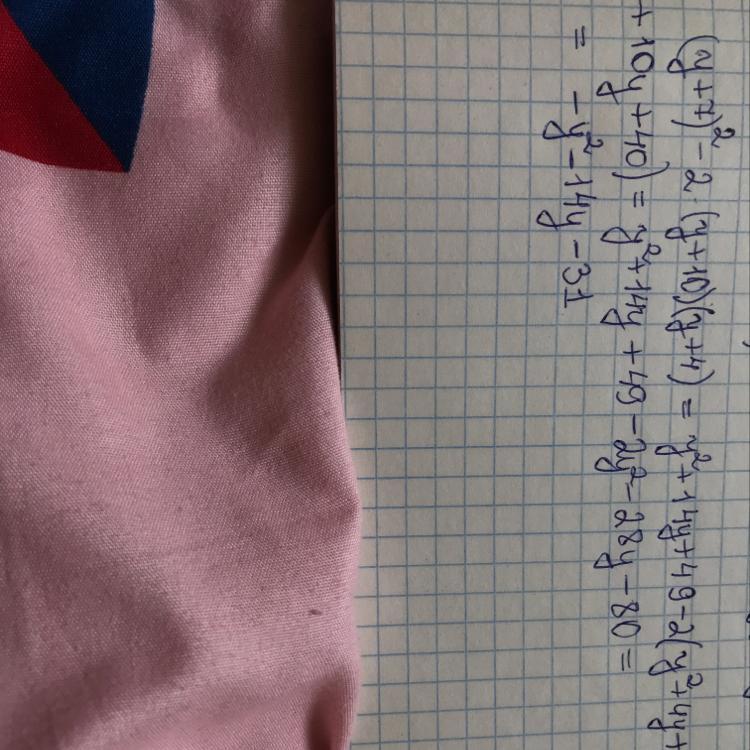 (y+7)² - 2·(y+10)(y+4) = y²+14y+49-2(y²+4y+
+10y+40) = y²+14y+49-2y²-28y-80 =
= -y²-14y-31